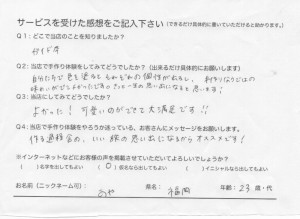 サービスを受けた感想をご記入下さい（できるだけ具体的に書いていただけると助かります。）
Q1：どこで当店のことを知りましたか？
ガイド本
Q2：当店で手作り体験をしてみてどうでしたか？（出来るだけ具体的にお願いします）
自分たちで色を塗るとそれぞれの個性が出るし、手作りならではの
味わいがでてよかったです。
Q3：当店にしてみてどうでしたか？
よかった！可愛いのができて大満足です!!
Q4：当店で手作り体験をやろうか迷っている、お客さんにメッセージをお願いします。
作る過程含め、いい旅の思い出になるからオススメです！
※インターネットなどにお客様の声を掲載させていただいてよろしいでしょうか？
（　）本名を出してもよい　（○）仮名なら出してもよい　（　）イニシャルなら出してもよい
お名前（ニックネーム可）： あや 県名： 福岡 年齢：23歳・代